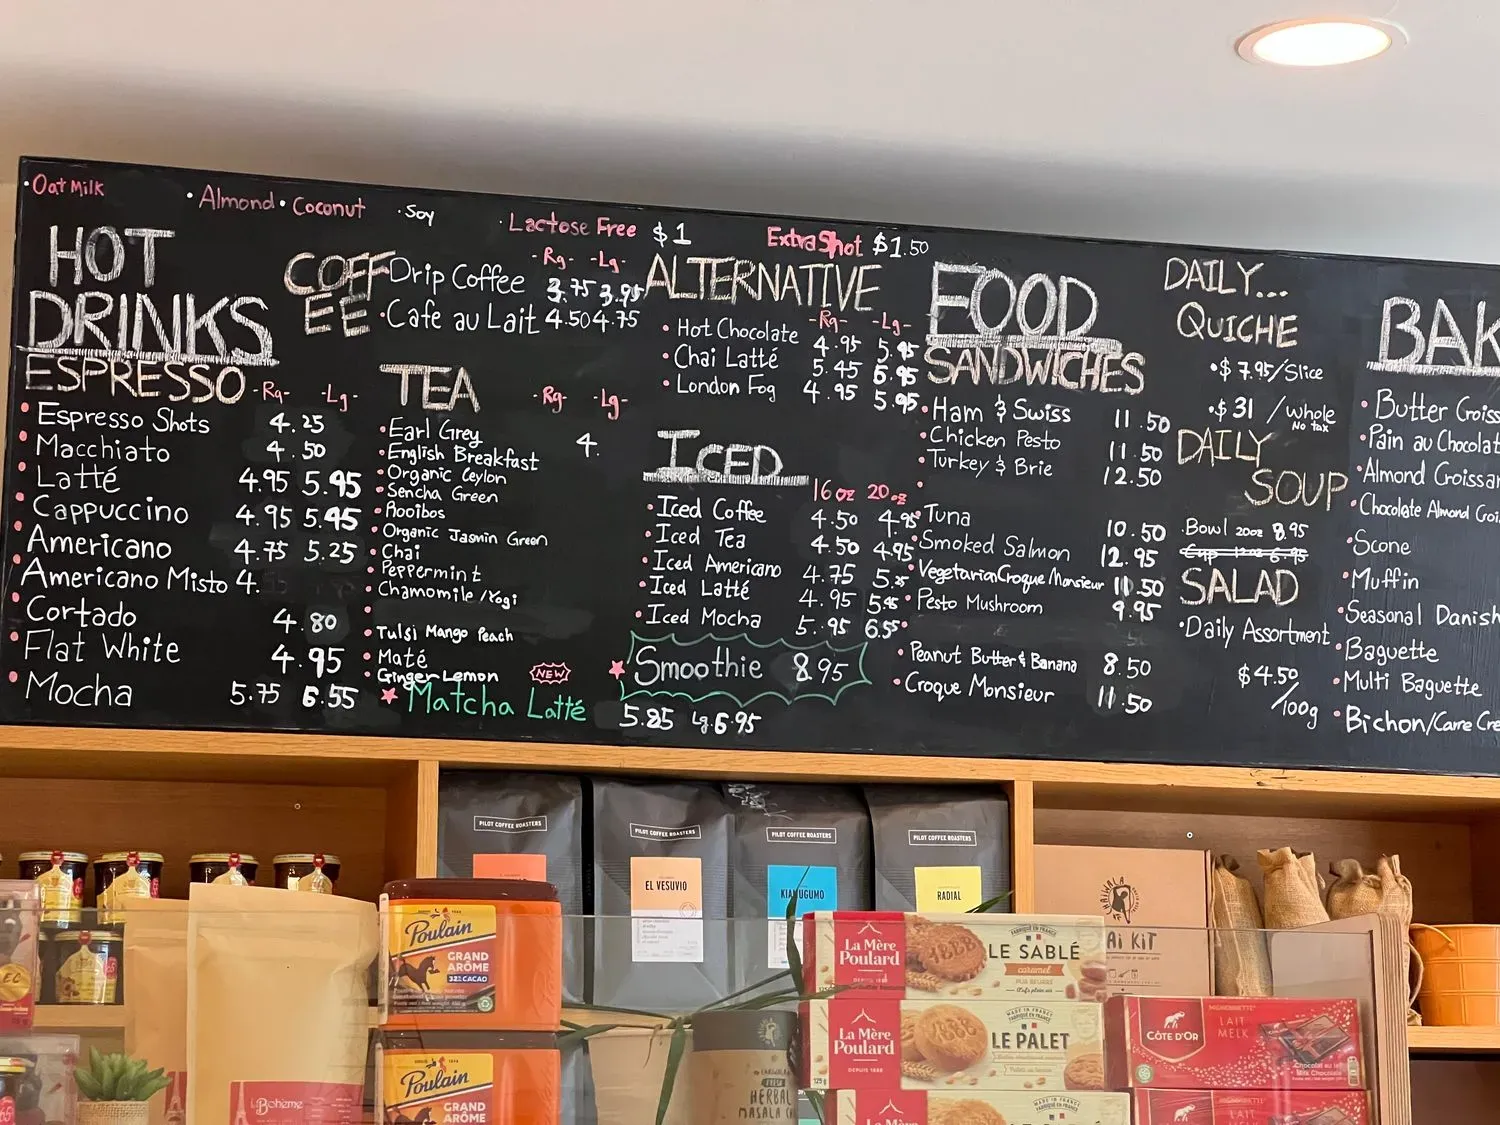 · Oat Milk · Almond · Coconut · Soy · Lactose Free $1 Extra Shot $1.50
HOT
DRINKS
ESPRESSO -Rg- -Lg-
• Espresso Shots 4.25
• Macchiato 4.50
• Latté 4.95 5.95
• Cappuccino 4.95 5.45
• Americano 4.75 5.25
• Americano Misto 4.
• Cortado 4.80
• Flat White 4.95
• Mocha 5.75 6.55
COFF
EE
-Rg- -Lg-
• Drip Coffee 3.75 3.95
• Cafe au Lait 4.50 4.75
TEA -Rg- -Lg-
• Earl Grey 4.
• English Breakfast
• Organic Ceylon
• Sencha Green
• Rooibos
• Organic Jasmin Green
• Chai
• Peppermint
• Chamomile / Yogi
• Tulsi Mango Peach
• Maté
• Ginger Lemon
NEW
Matcha Latté 5.25 Lg 6.95
ALTERNATIVE
-Rg- -Lg-
• Hot Chocolate 4.95 5.95
• Chai Latté 5.45 6.95
• London Fog 4.95 5.95
ICED
16oz 20oz
• Iced Coffee 4.50 4.95
• Iced Tea 4.50 4.95
• Iced Americano 4.75 5.25
• Iced Latté 4.95 5.45
• Iced Mocha 5.95 6.55
Smoothie 8.95
FOOD
SANDWICHES
• Ham & Swiss 11.50
• Chicken Pesto 11.50
• Turkey & Brie 12.50
• Tuna 10.50
• Smoked Salmon 12.95
• Vegetarian Croque Monsieur 11.50
• Pesto Mushroom 9.95
• Peanut Butter & Banana 8.50
• Croque Monsieur 11.50
DAILY...
QUICHE
• $7.95/Slice
• $31 / Whole
No tax
DAILY
SOUP
• Bowl 20oz 8.95
Cup 12oz 6.95
SALAD
• Daily Assortment
$4.50
/100g
BAK
• Butter Croiss
• Pain au Chocolat
• Almond Croissan
• Chocolate Almond Croi
• Scone
• Muffin
• Seasonal Danish
• Baguette
• Multi Baguette
• Bichon/Carre Cre
PILOT COFFEE ROASTERS
PILOT COFFEE ROASTERS
PILOT COFFEE ROASTERS
PILOT COFFEE ROASTERS
EL VESUVIO
KIAMUGUMO
RADIAL
Poulain
GRAND
ARÔME
32% CACAO
Poulain
GRAND
ARÔME
La Bohème
HERBAL
MASALA
La Mère
Poulard
DEPUIS 1888
LE SABLÉ
caramel
PUR BEURRE
La Mère
Poulard
DEPUIS 1888
125g
LE PALET
La Mère
CÔTE D'OR
MIGNONNETTE
LAIT
MELK
Chocolat au lait
Milk Chocolate
LAIT
KIT